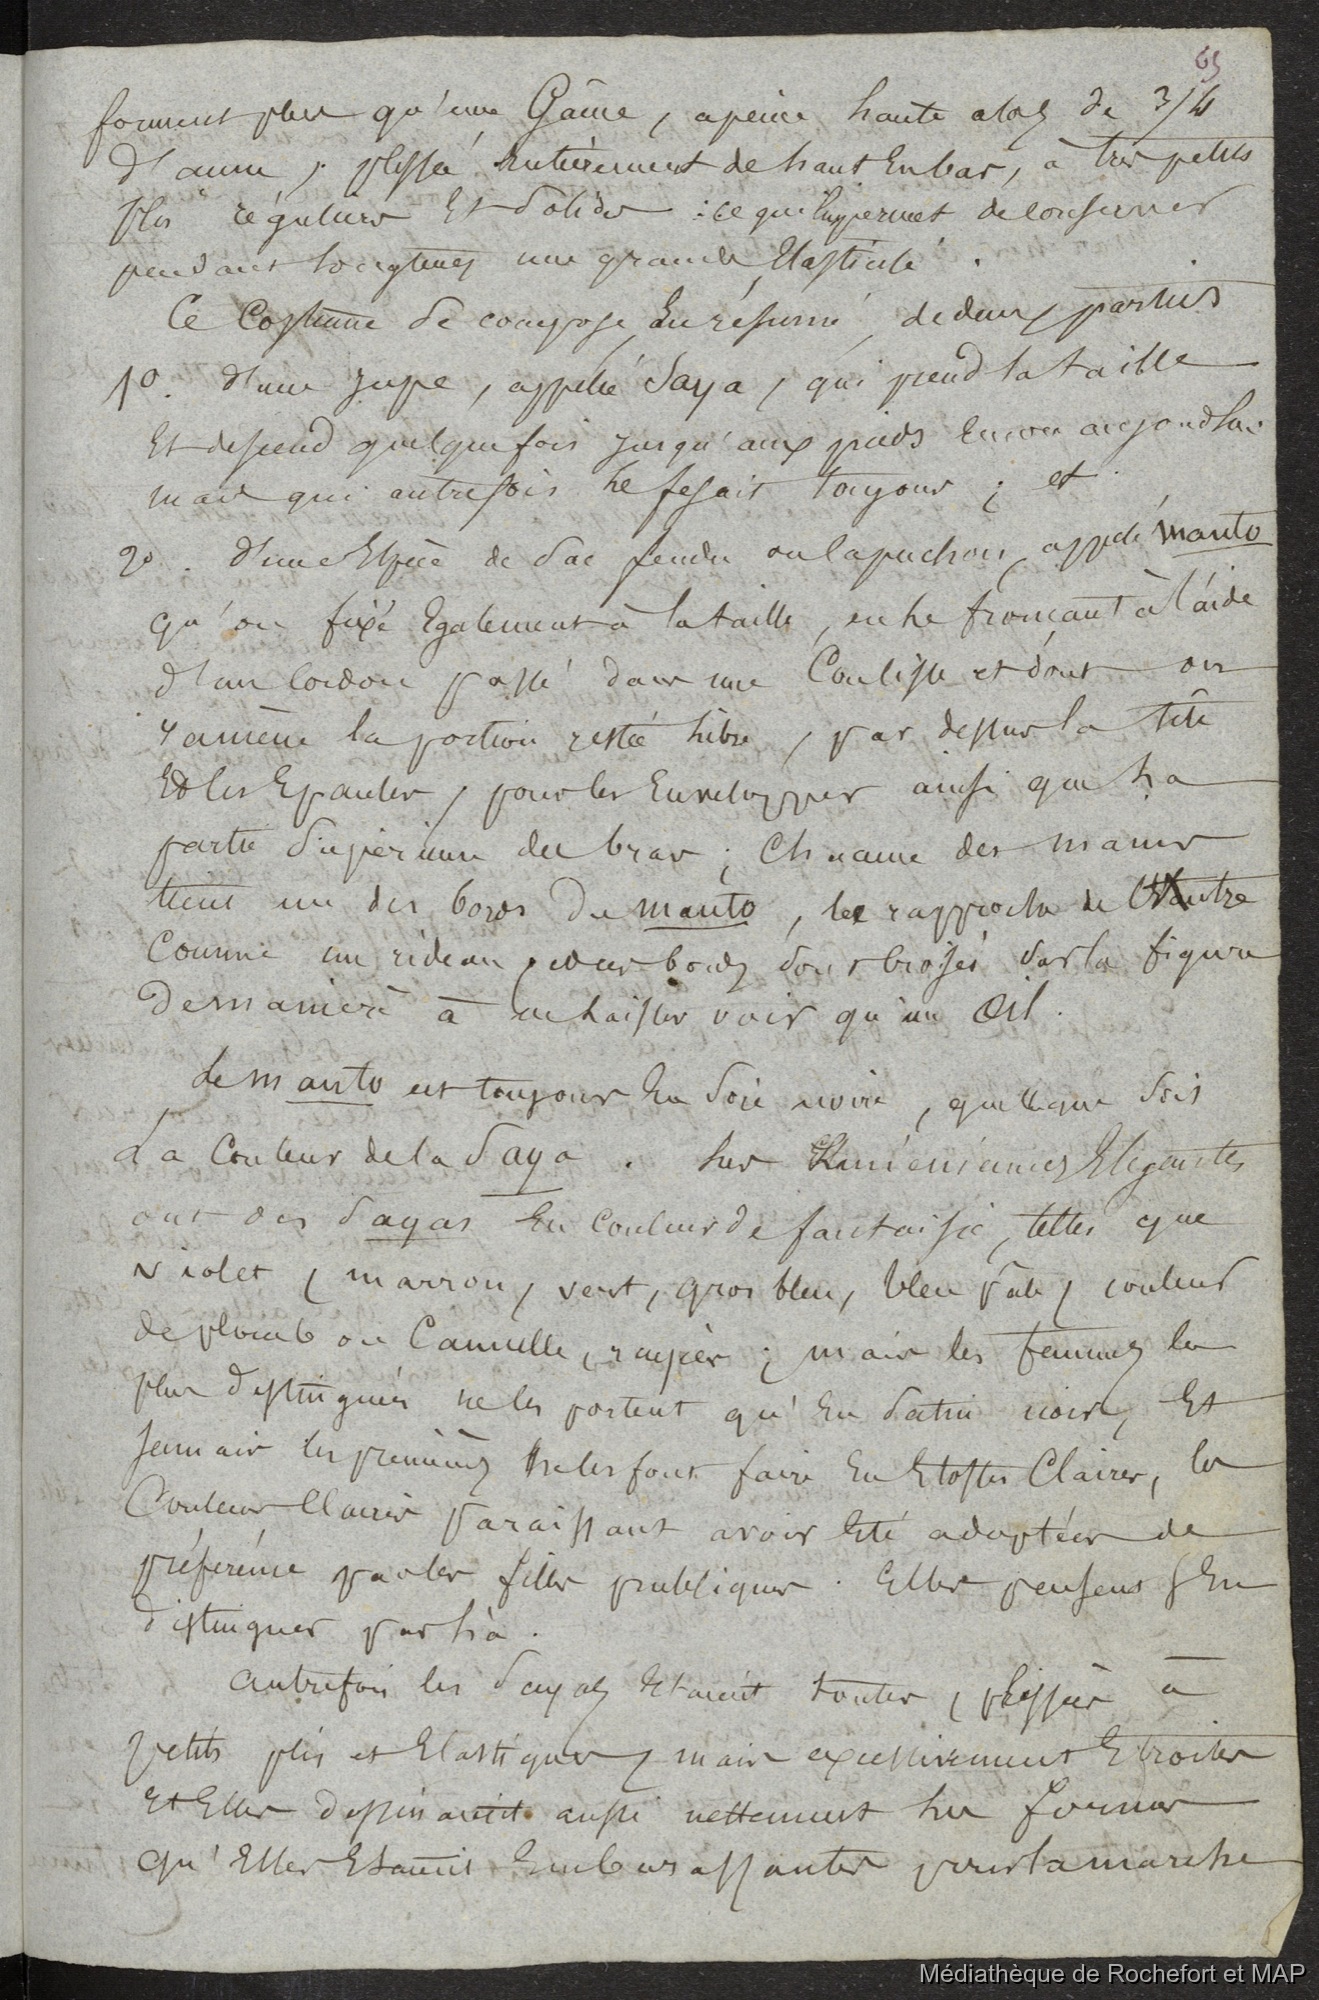 65
forment plus qu'une Gaîne, apeine haute alors de 3/4
d'aune, plissée Entièrement de haut En bas, à très petits
plis réguliers Et Solides : ce qui lui permet de conserver
pendant longtems une grande Elasticité.
Ce Costume Se compose En résumé, de deux parties
1º. d'une jupe, appelée Saya, qui prend la taille
Et descend quelquefois jusqu'aux pieds Encore aujourd'hui
mais qui autrefois le fesait toujours ; et
2º. d'une Espèce de Sac fendu ou Capuchon, appelé manto
qu'on fixe Egalement à la taille, en le fronçant à l'aide
d'un Cordon passé dans une Coulisse et dont on
ramène la portion restée libre, par dessus la tête
Et les Epaules, pour les Envelopper ainsi que la
partie Supérieure des bras ; Chacune des mains
tient un des bords du manto, le rapproche de l'autre
Comme un rideau, et les bords sont croisés sur la figure
de manière à ne laisser voir qu'un Œil.
Le manto est toujours En Soie noire, quelle que Soit
La Couleur de la Saya. les Liméniennes Elégantes
ont des Sayas En Couleur de fantaisie, telles que
violet, marron, vert, gros bleu, bleu pâle, couleur
de plomb ou Cannelle, rayées ; mais les femmes les
plus distinguées ne les portent qu'En Satin noir, Et
jamais les premières ne les font faire En Etoffes Claires, les
Couleurs Claires paraissant avoir Eté adoptées de
préférence par les filles publiques. Elles pensent S'En
distinguer par là.
autrefois les Sayas Etaient toutes, plissées à
petits plis et Elastiques, mais excessivement Etroites
Et Elles dessinaient aussi nettement les formes
qu'Elles Etaient Embarassantes pour la marche
Médiathèque de Rochefort et MAP